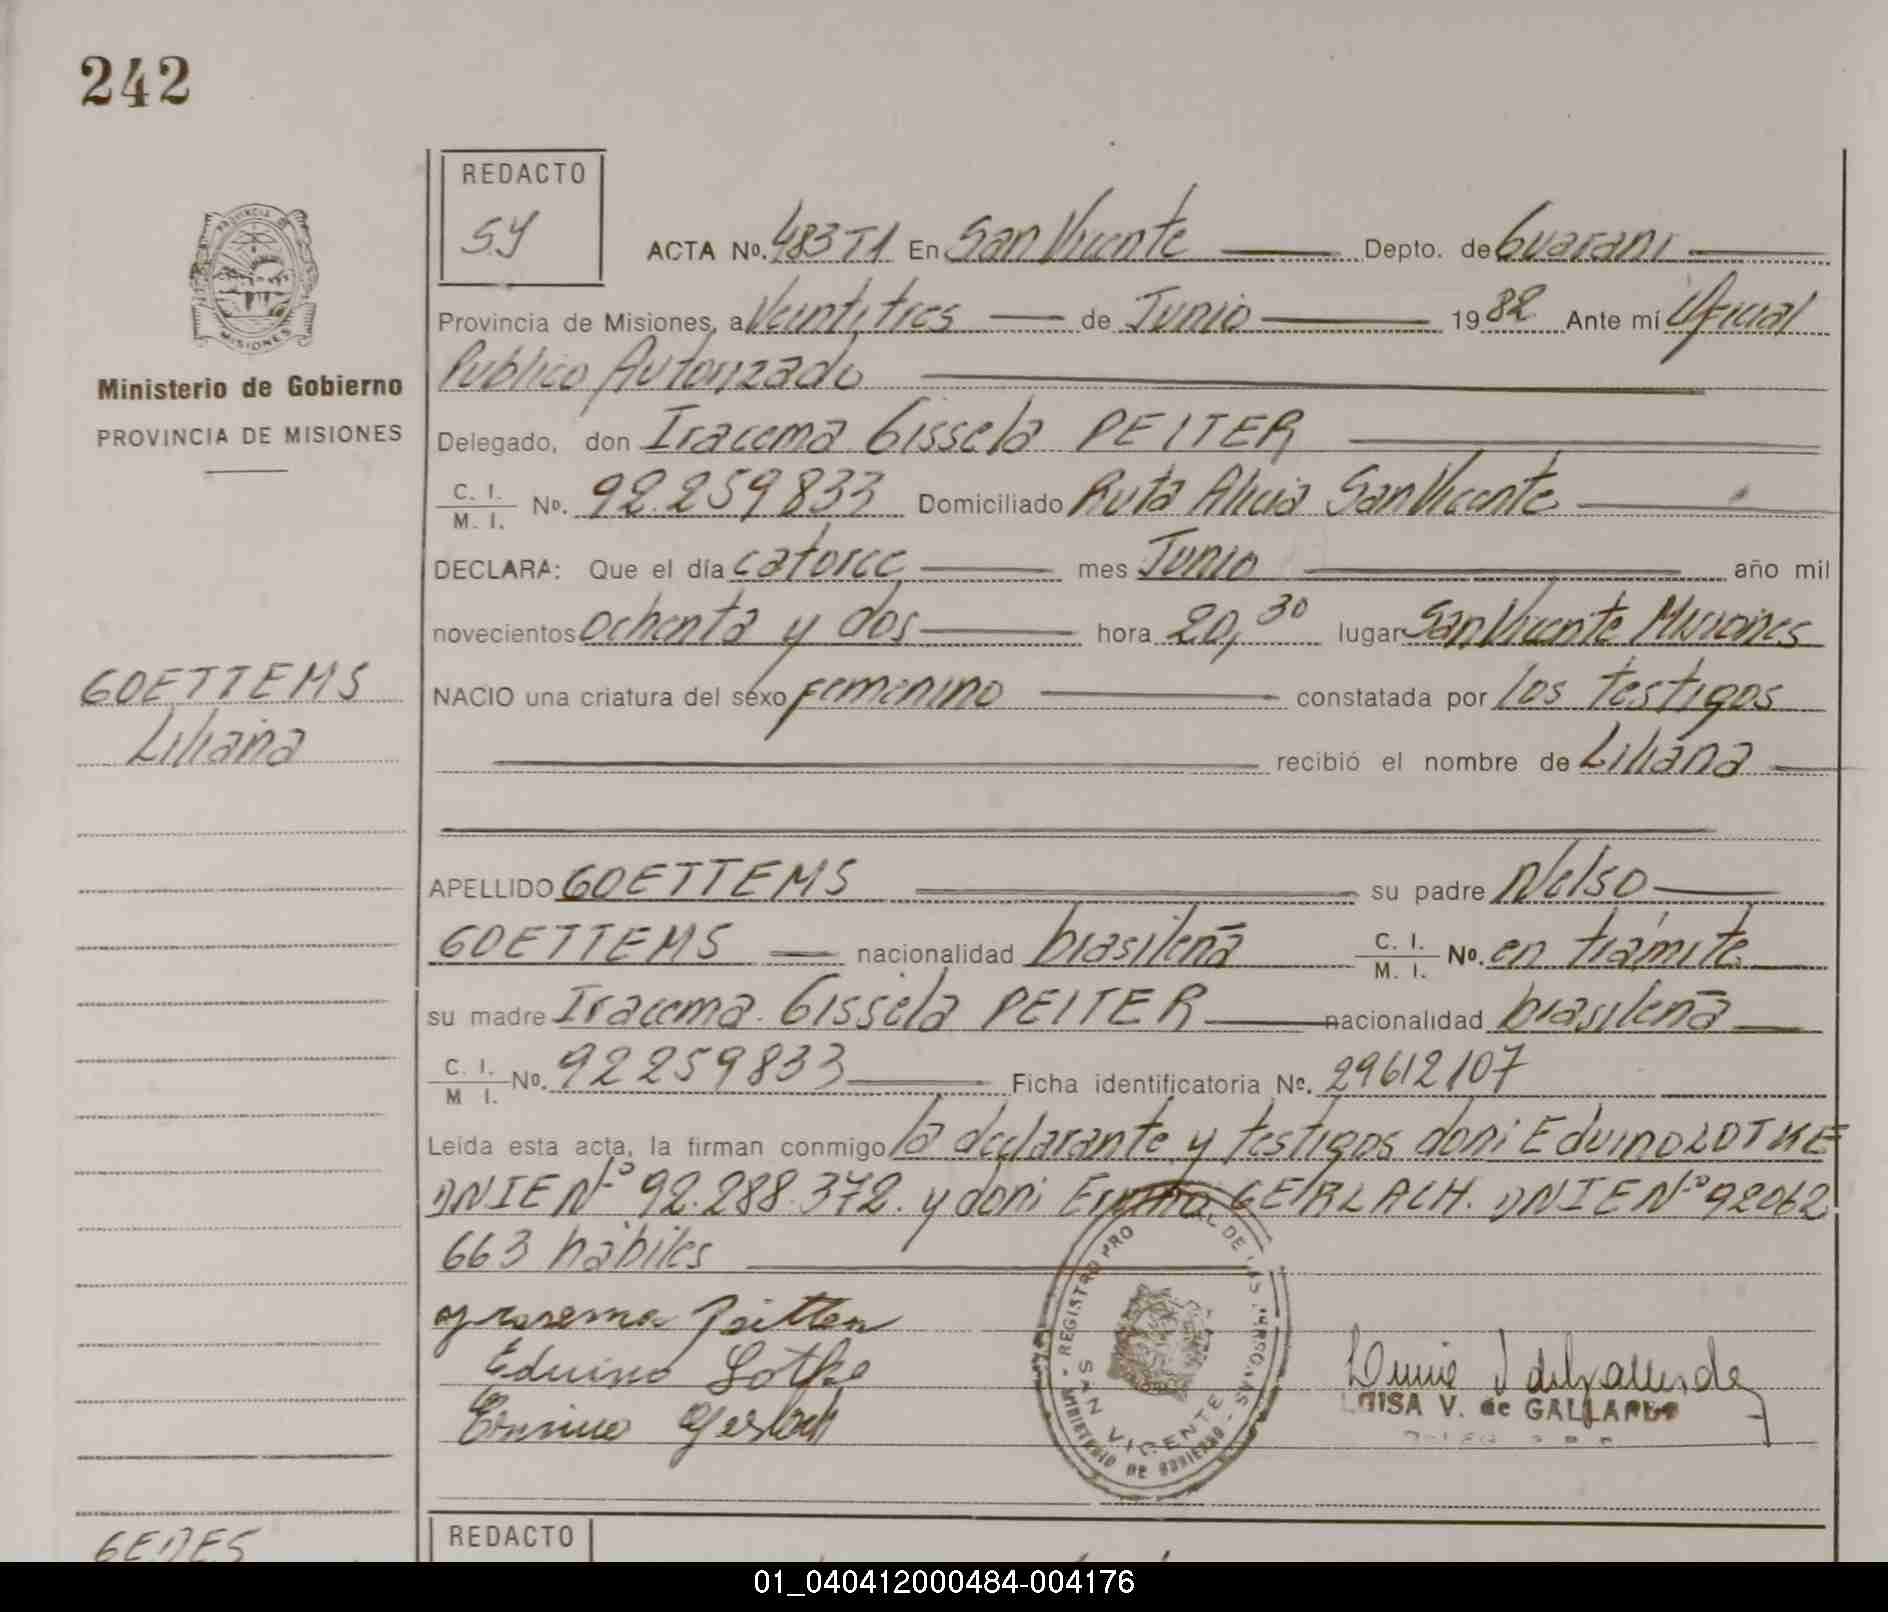 242
REDACTO
S.Y
ACTA No. 483 T1 En San Vicente Depto. de Guarani
Provincia de Misiones, a Veintitres de Junio 1982 Ante mí Oficial
Publico Autorizado
Ministerio de Gobierno
PROVINCIA DE MISIONES
Delegado, don Iracema Gissela PEITER
C. I. M. I. No. 92.259833 Domiciliado Ruta Alicia San Vicente
DECLARA: Que el día catorce mes Junio año mil
novecientos ochenta y dos hora 20,30 lugar San Vicente Misiones
GOETTEMS
Liliana
NACIO una criatura del sexo femenino constatada por los testigos
recibió el nombre de Liliana
APELLIDO GOETTEMS su padre Nelso
GOETTEMS nacionalidad brasileña C. I. M. I. No. en trámite
su madre Iracema Gissela PEITER nacionalidad brasileña
C. I. M I. No. 92259833 Ficha identificatoria No. 29612107
Leída esta acta, la firman conmigo la declarante y testigos doni Eduino LOTKE
DNIE Nº 92.288.372. y doni Ermino GERLACH. DNIE Nº 92062
663 hábiles
Eduino Lotke
REGISTRO PRO DE LAS PERSONAS
SAN VICENTE
MINISTERIO DE GOBIERNO
LUISA V. de GALLARDO
REDACTO
01_040412000484-004176